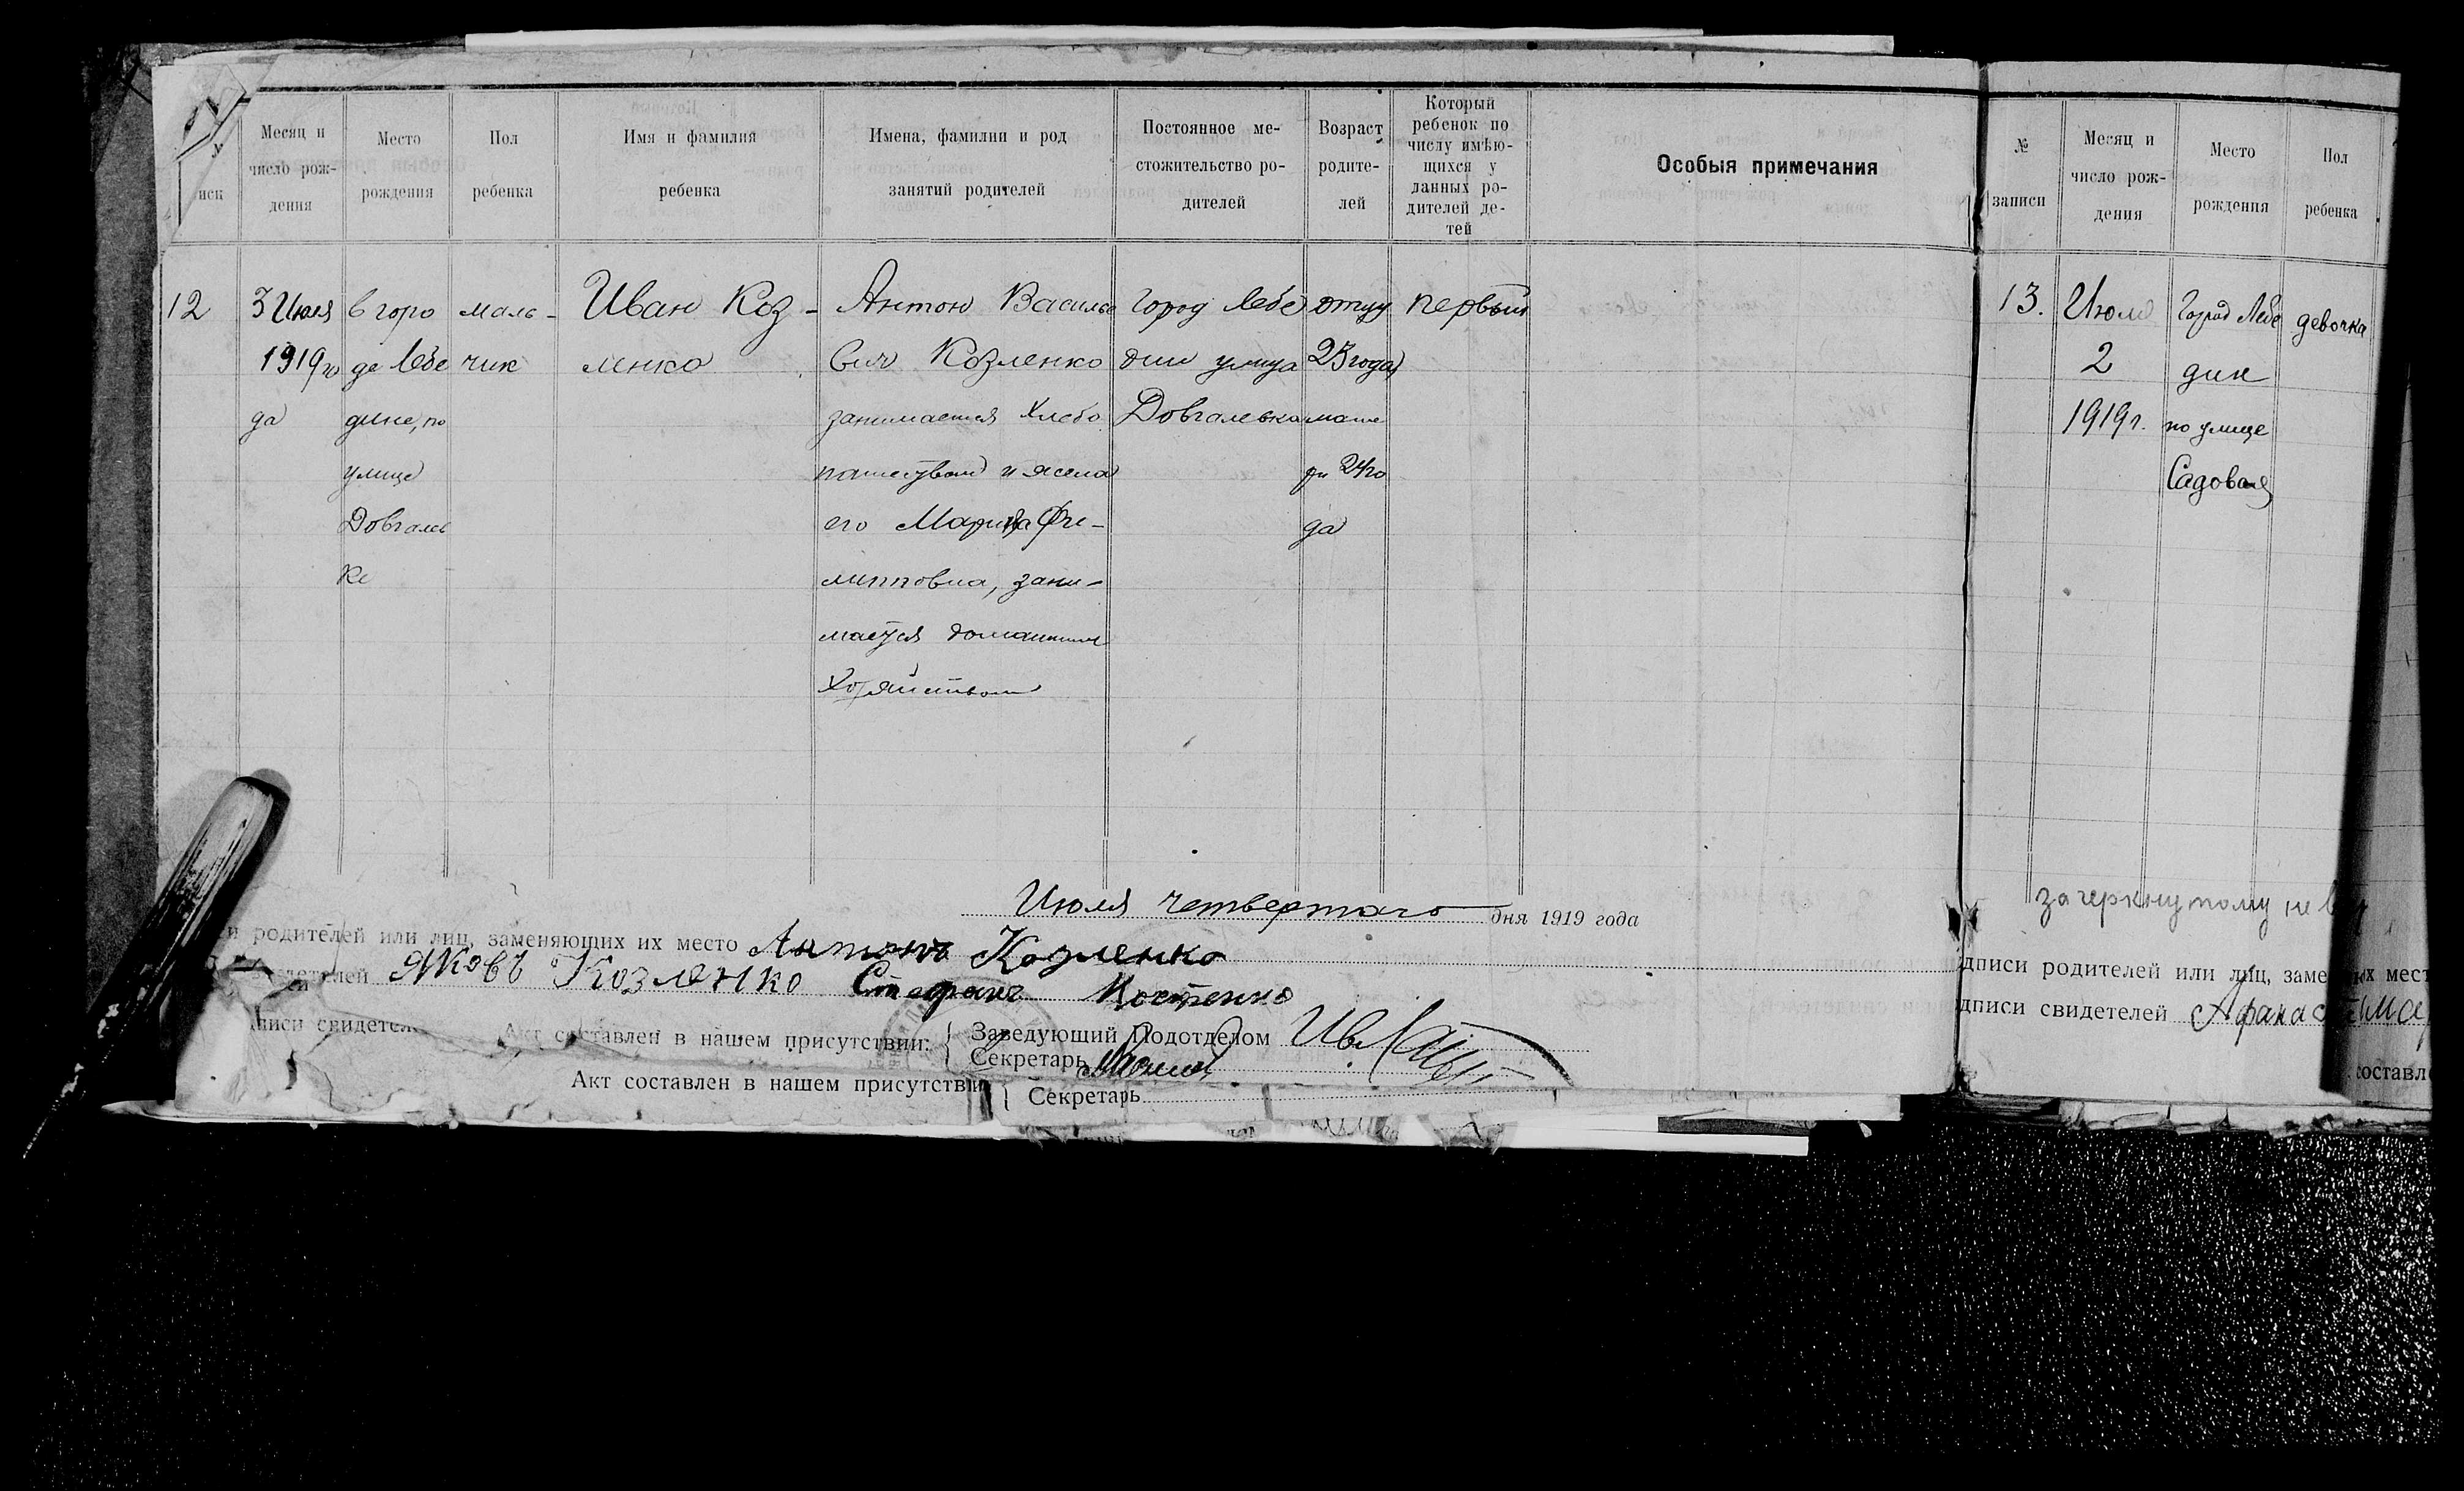 № иси
Месяц и число рождения
Место рождения
Пол ребенка
Имя и фамилия ребенка
Имена, фамилии и род занятий родителей
Постоянное местожительство родителей
Возраст родителей
Который ребенок по числу имѣющихся у данных родителей детей
Особыя примечания
12
3 Июля
1919 го
да
в горо
де Лебе
дине, по
улице
Довгалев
ке
маль-
чик
Иван Коз-
ленко
Антон Василье
вич Козленко
занимается хлебо
пашеством и жена
его Марина Фи-
липповна, зани-
мается домашним
хозяйством
Город Лебе
дин улица
Довгалевка
отцу
23 года
мате
ри 24 го
да
первый
Июля четвертого дня 1919 года
и родителей или лиц, заменяющих их место Антонъ Козленко
детелей Яковъ Козленко Стефанъ Костенко
писи свидетел
Акт составлен в нашем присутствии: { Заведующий Подотделом Ив.
Секретарь
Акт составлен в нашем присутствии
Секретарь
№ записи
Месяц и число рождения
Место рождения
Пол ребенка
13.
Июля
2
1919 г.
Город Лебе
дин
по улице
Садовая
девочка
зачеркнутому не
дписи родителей или лиц, заме их мест
дписи свидетелей Афанас
составл